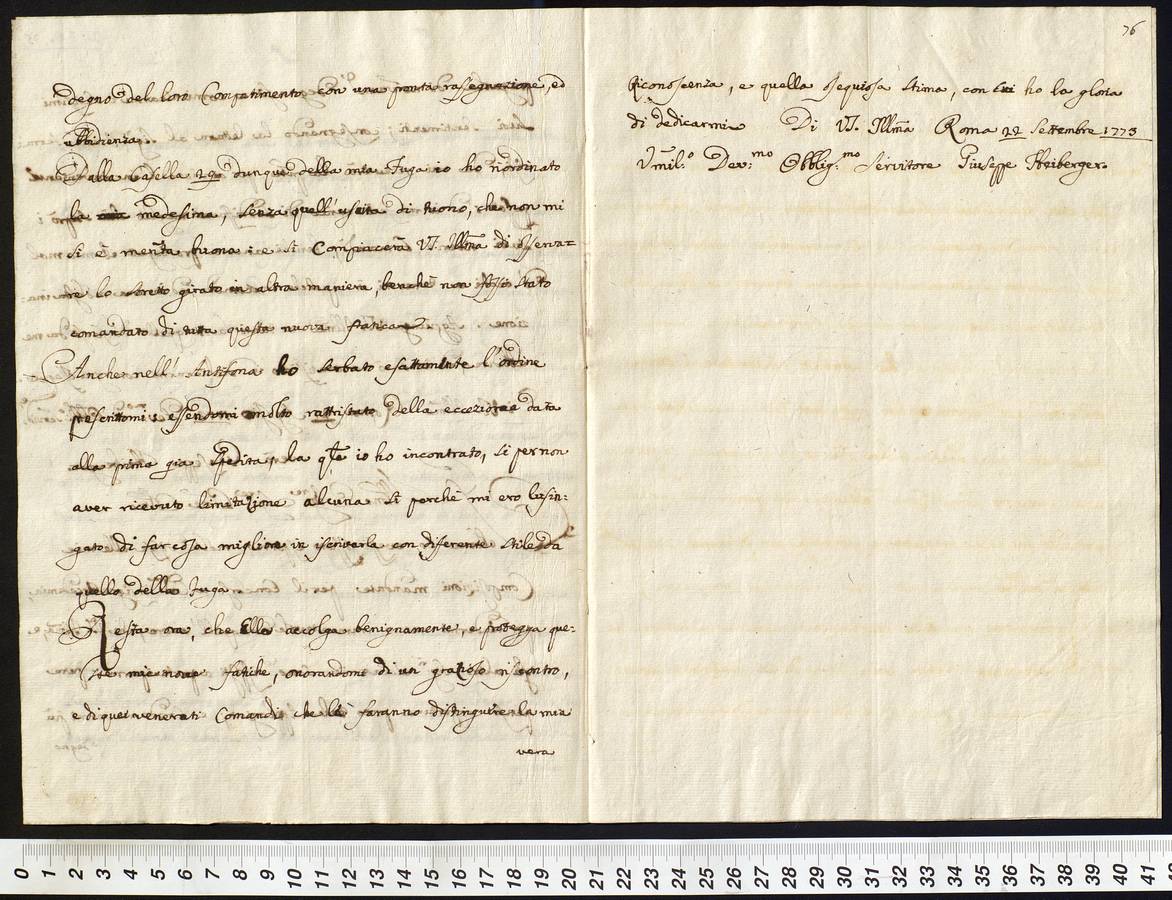 degno del loro Compatimento con una pronta rassegnazione, ed
ubbidienza.
Dalla Casella 29 dunque della mia Fuga io ho riordinato
la medesima, senza quell'uscita di tuono, che non mi
si è menata buona: e si compiacerà V.S. Illma di osserva=
re lo stretto girato in altra maniera, benche non fossi stato
comandato di tutta questa nuova fatica.
Anche nell'Antifona ho serbato esattamente l'ordine
prescrittomi; essendomi molto rattristato della eccezione data
alla prima gia spedita, la qle io ho incontrato, sì per non
aver ricevuto limitazione alcuna sì perchè mi ero lusin:
gato di far cosa migliore in iscriverla con differente stile da
quello della Fuga.
Resta ora, che Ella accolga benignamente, e protegga que:
ste mie nove fatiche, onorandomi di un grazioso riscontro,
e di quei venerati Comandi che le faranno distinguere la mia
vera
76
Riconoscenza, e quella ossequiosa stima, con cui ho la gloria
di dedicarmi Di V.S. Illma Roma 22 Settembre 1773
Umil:o Dev:mo Obblig:mo Servitore Giuseppe Heiberger